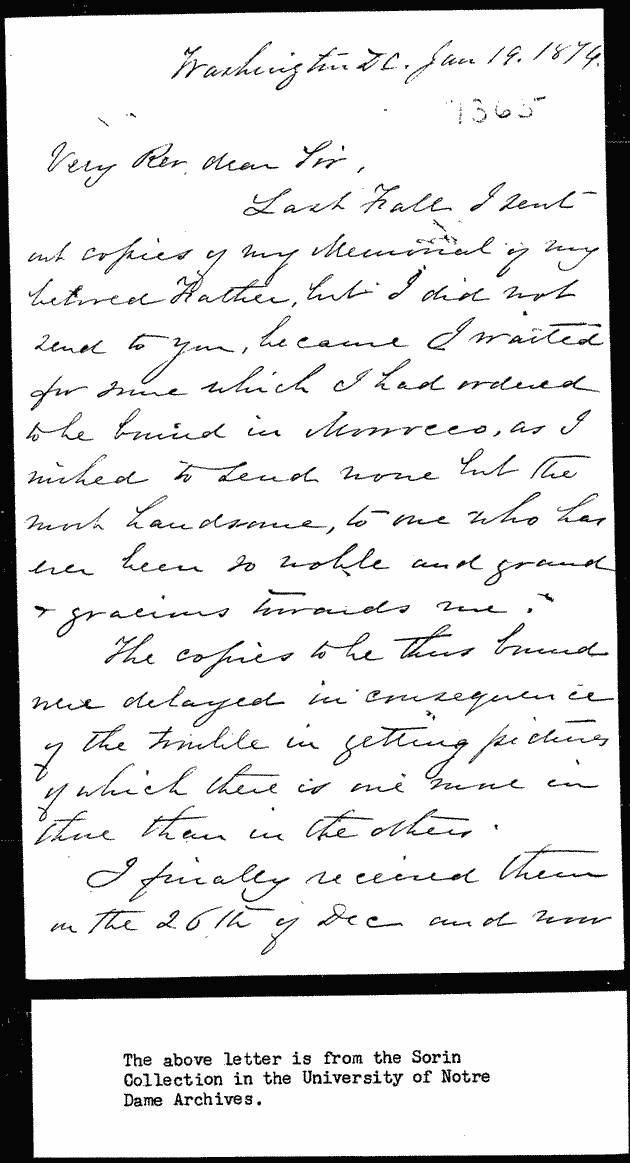 Washington DC. Jan 19. 1879.
7365
Very Rev. dear Sir,
Last Fall I sent
out copies of my Memorial of my
beloved Father, but I did not
send to you, because I waited
for some which I had ordered
to be bound in Morocco, as I
wished to send none but the
most handsome, to one who has
ever been so noble and grand
& gracious towards me.
The copies to be thus bound
were delayed in consequence
of the trouble in getting pictures
of which there is one more in
these than in the others.
I finally received them
on the 26th of Dec and now
The above letter is from the Sorin
Collection in the University of Notre
Dame Archives.